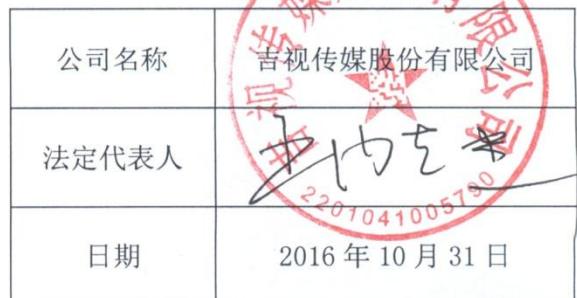 公司名称 吉视传媒股份有限公司
法定代表人
日期 2016 年 10 月 31 日
吉视传媒股份有限公司
2201041005790